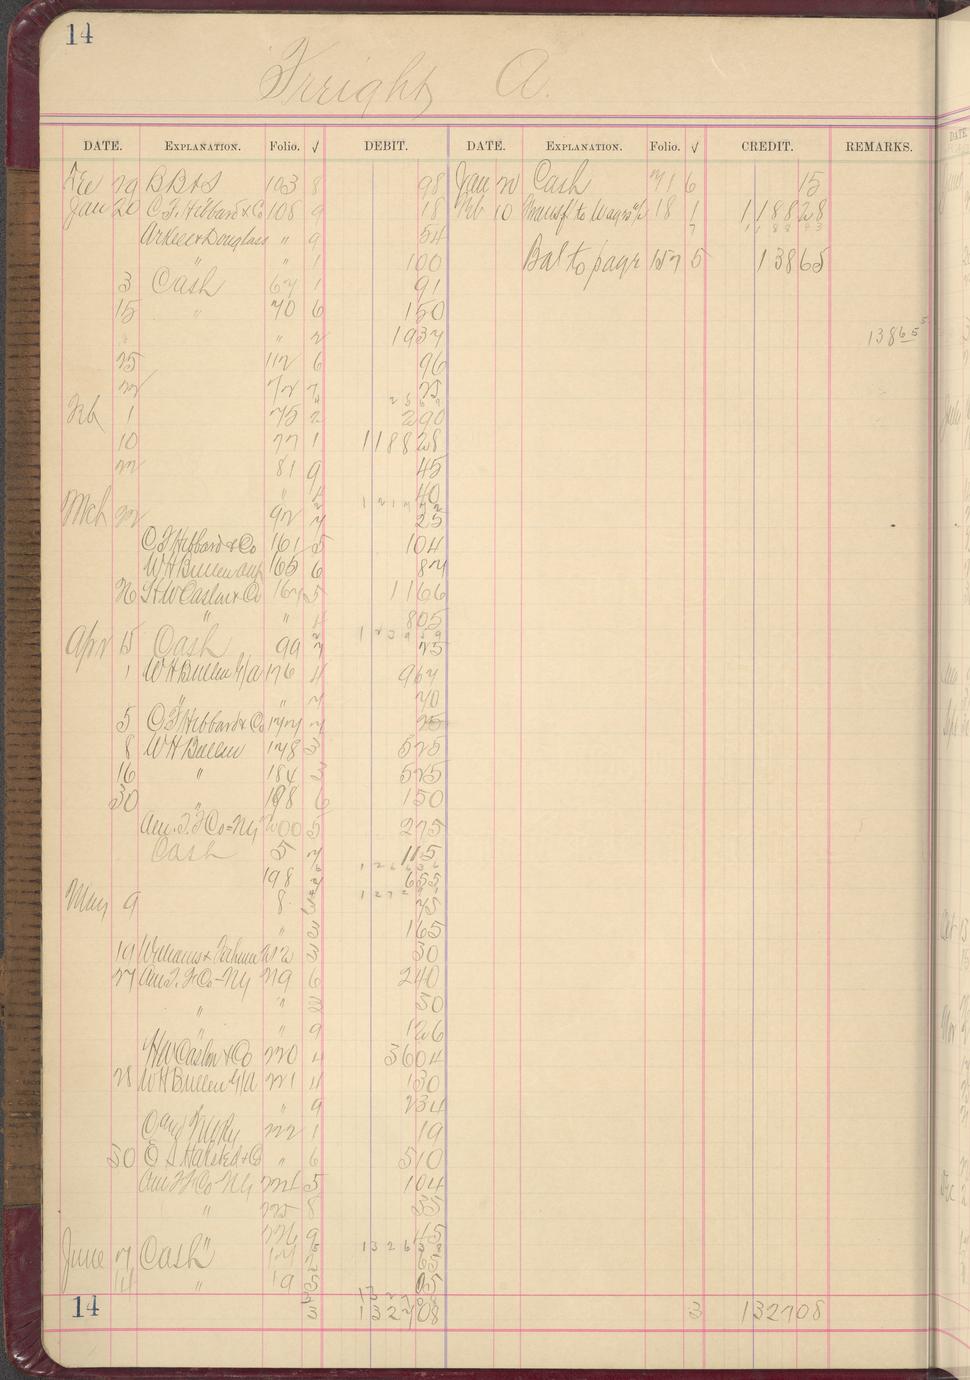 14
Freight A.
DATE. EXPLANATION. Folio. √ DEBIT. DATE. EXPLANATION. Folio. √ CREDIT. REMARKS.
Dec 29 B B & S 103 8 98 Jan 20 Cash 71 6 15
Jan 20 C. F. Hibbard & Co 108 9 18 Feb 10 Transf. to Wagr a/c 18 1 1188 28
" 9 54
" " 1 100 Bal to page 157 5 138 65
3 Cash 67 1 91
15 " 70 6 150
" 2 1937 138 65
25 112 6 96
22 72 7 25
Feb 1 75 2 290
10 77 1 1188 28
22 81 9 45
" 4 40
Mch 22 92 7 25
C F Hibbard & Co 161 5 104
W H Bullen 165 6 87
26 H W Caslon & Co 167 5 1166
" " 4 805
Apr 15 Cash 99 7 25
1 W H Bullen G/A 176 4 967
" " 7 70
5 C F Hibbard & Co 177 7 25
8 W H Bullen 178 3 525
16 " 184 3 525
30 " 198 6 150
Am. T. F Co - NY 200 5 275
Cash 5 7 115
198 655
May 9 8 75
" 3 165
19 Williams & 212 3 30
27 Am. T. F Co - NY 219 6 240
" " 30
" " 9 126
H W Caslon & Co 220 4 3604
28 W H Bullen G/A 221 4 130
" 9 234
222 1 19
30 E. S. Halsted & Co " 6 510
Am T F Co NY 224 5 104
" 225 8 35
" 226 9 45
June 7 Cash 17 65
14 " 19 5 05
14 3 1327 08 3 1327 08